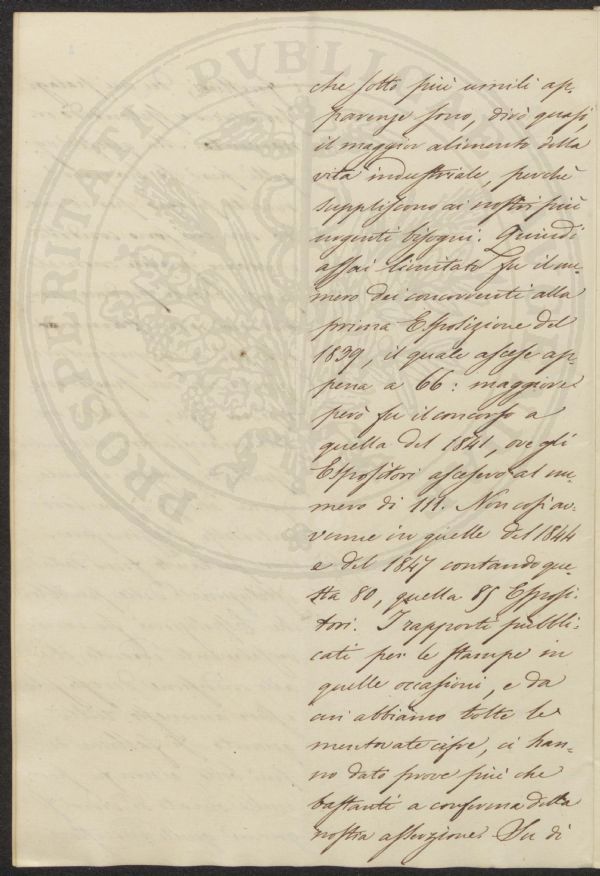 PROSPERITATI PVBLICAE
che sotto più umili ap-
parenze sono, dirò quasi,
il maggior alimento della
vita industriale, perchè
suppliscono ai nostri più
urgenti bisogni. Quindi
assai limitato fu il nu-
mero dei concorrenti alla
prima Esposizione del
1839, il quale ascese ap-
pena a 66: maggiore
però fu il concorso a
quella del 1841, ove gli
Espositori ascesero al nu-
mero di 111. Non così av-
venne in quelle del 1844
e del 1847 contando que-
sta 80, quella 85 Esposi-
tori. I rapporti pubbli-
cati per le stampe in
quelle occasioni, e da
cui abbiamo tolte le
mentovate cifre, ci han-
no dato prove più che
bastanti a conferma della
nostra asserzione. Su di